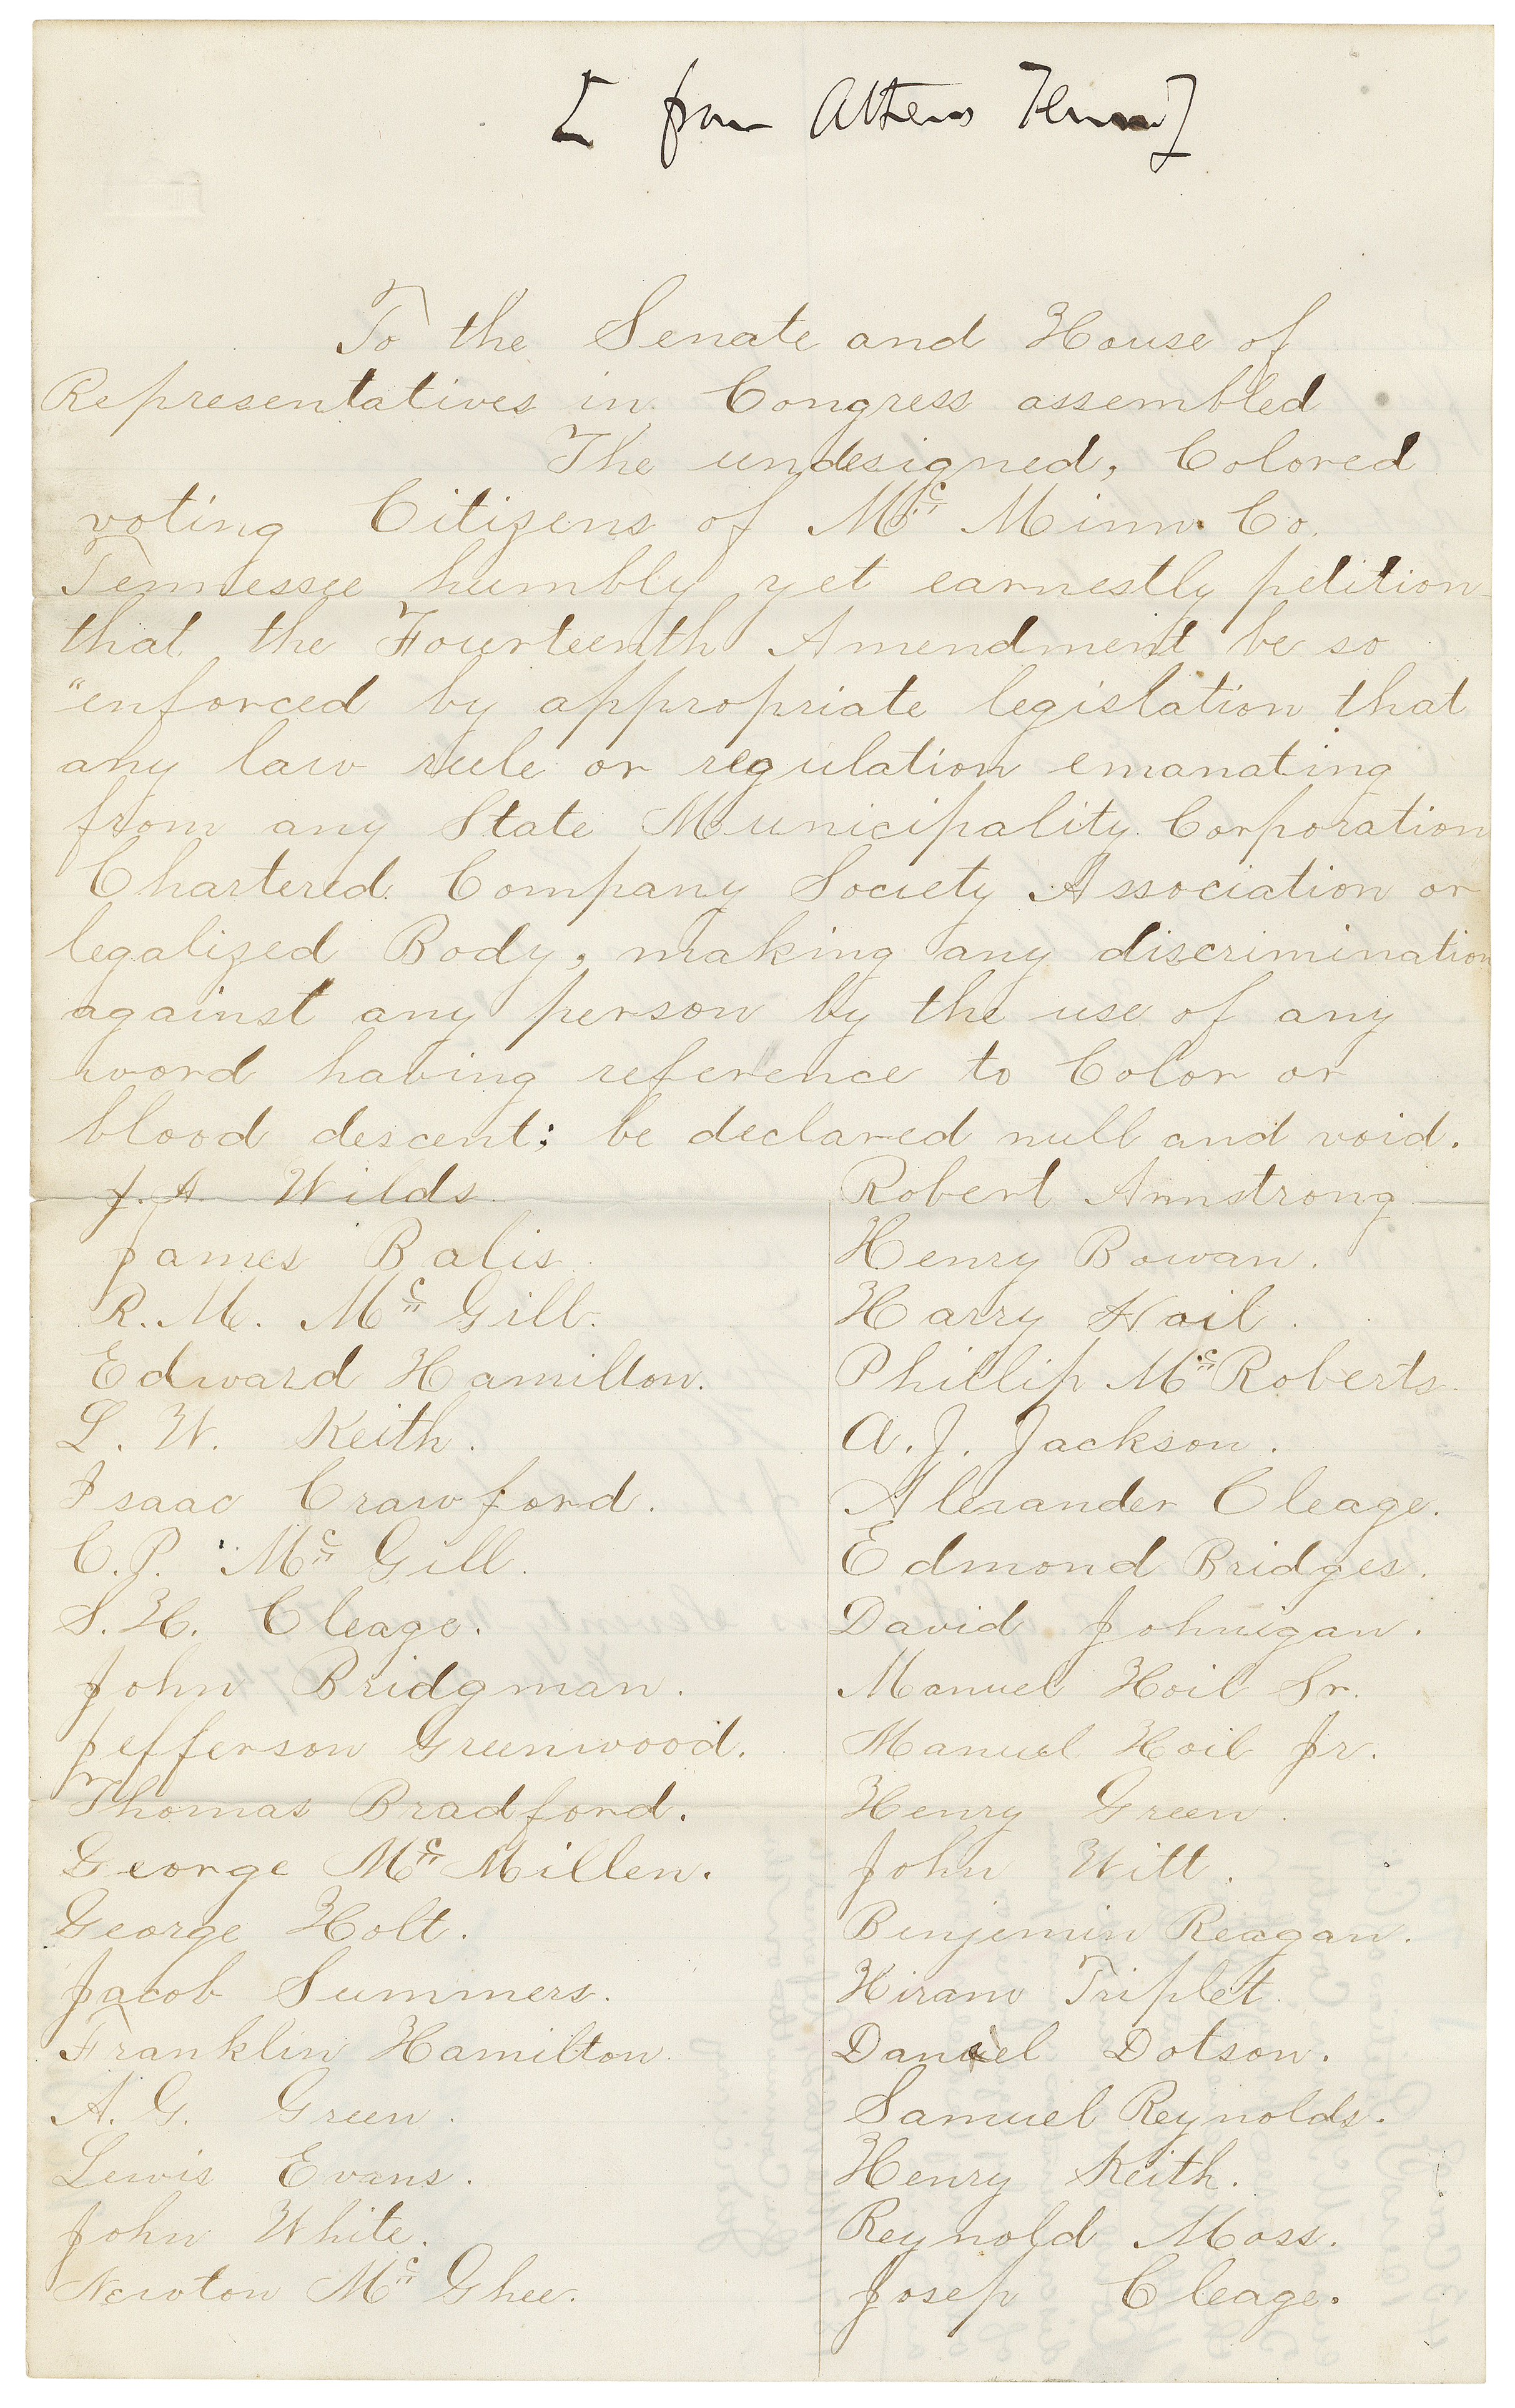 [from Athens Tenn]
To the Senate and House of
Representatives in Congress assembled
The undesigned, Colored
voting Citizens of Mc Minn Co.
Tennessee humbly yet earnestly petition
that the Fourteenth Amendment be so
"enforced by appropriate legislation that
any law rule or regulation emanating
from any State Municipality Corporation
Chartered Company Society Association or
legalized Body, making any discrimination
against any person by the use of any
word having reference to Color or
blood descent; be declared null and void.
J. A Wilds
James Balis
R. M. Mc Gill.
Edward Hamilton.
L. W. Keith.
Isaac Crawford.
C. P. Mc Gill.
S. H. Cleage.
John Bridgman.
Jefferson Greenwood.
Thomas Bradford.
George Mc Millen.
George Holt.
Jacob Summers.
Franklin Hamilton.
A. G. Green.
Lewis Evans.
John White.
Newton Mc Ghee.
Robert Armstrong
Henry Bowan.
Harry Hoil.
Phillip McRoberts
A. J. Jackson.
Alexander Cleage.
Edmond Bridges.
David Johnigan.
Manuel Hoil Sr.
Manuel Hoil Jr.
Henry Green.
John Witt.
Benjemin Reagan.
Hiram Triplet
Daniel Dotson.
Samuel Reynolds.
Henry Keith.
Reynold Moss.
Josep Cleage.